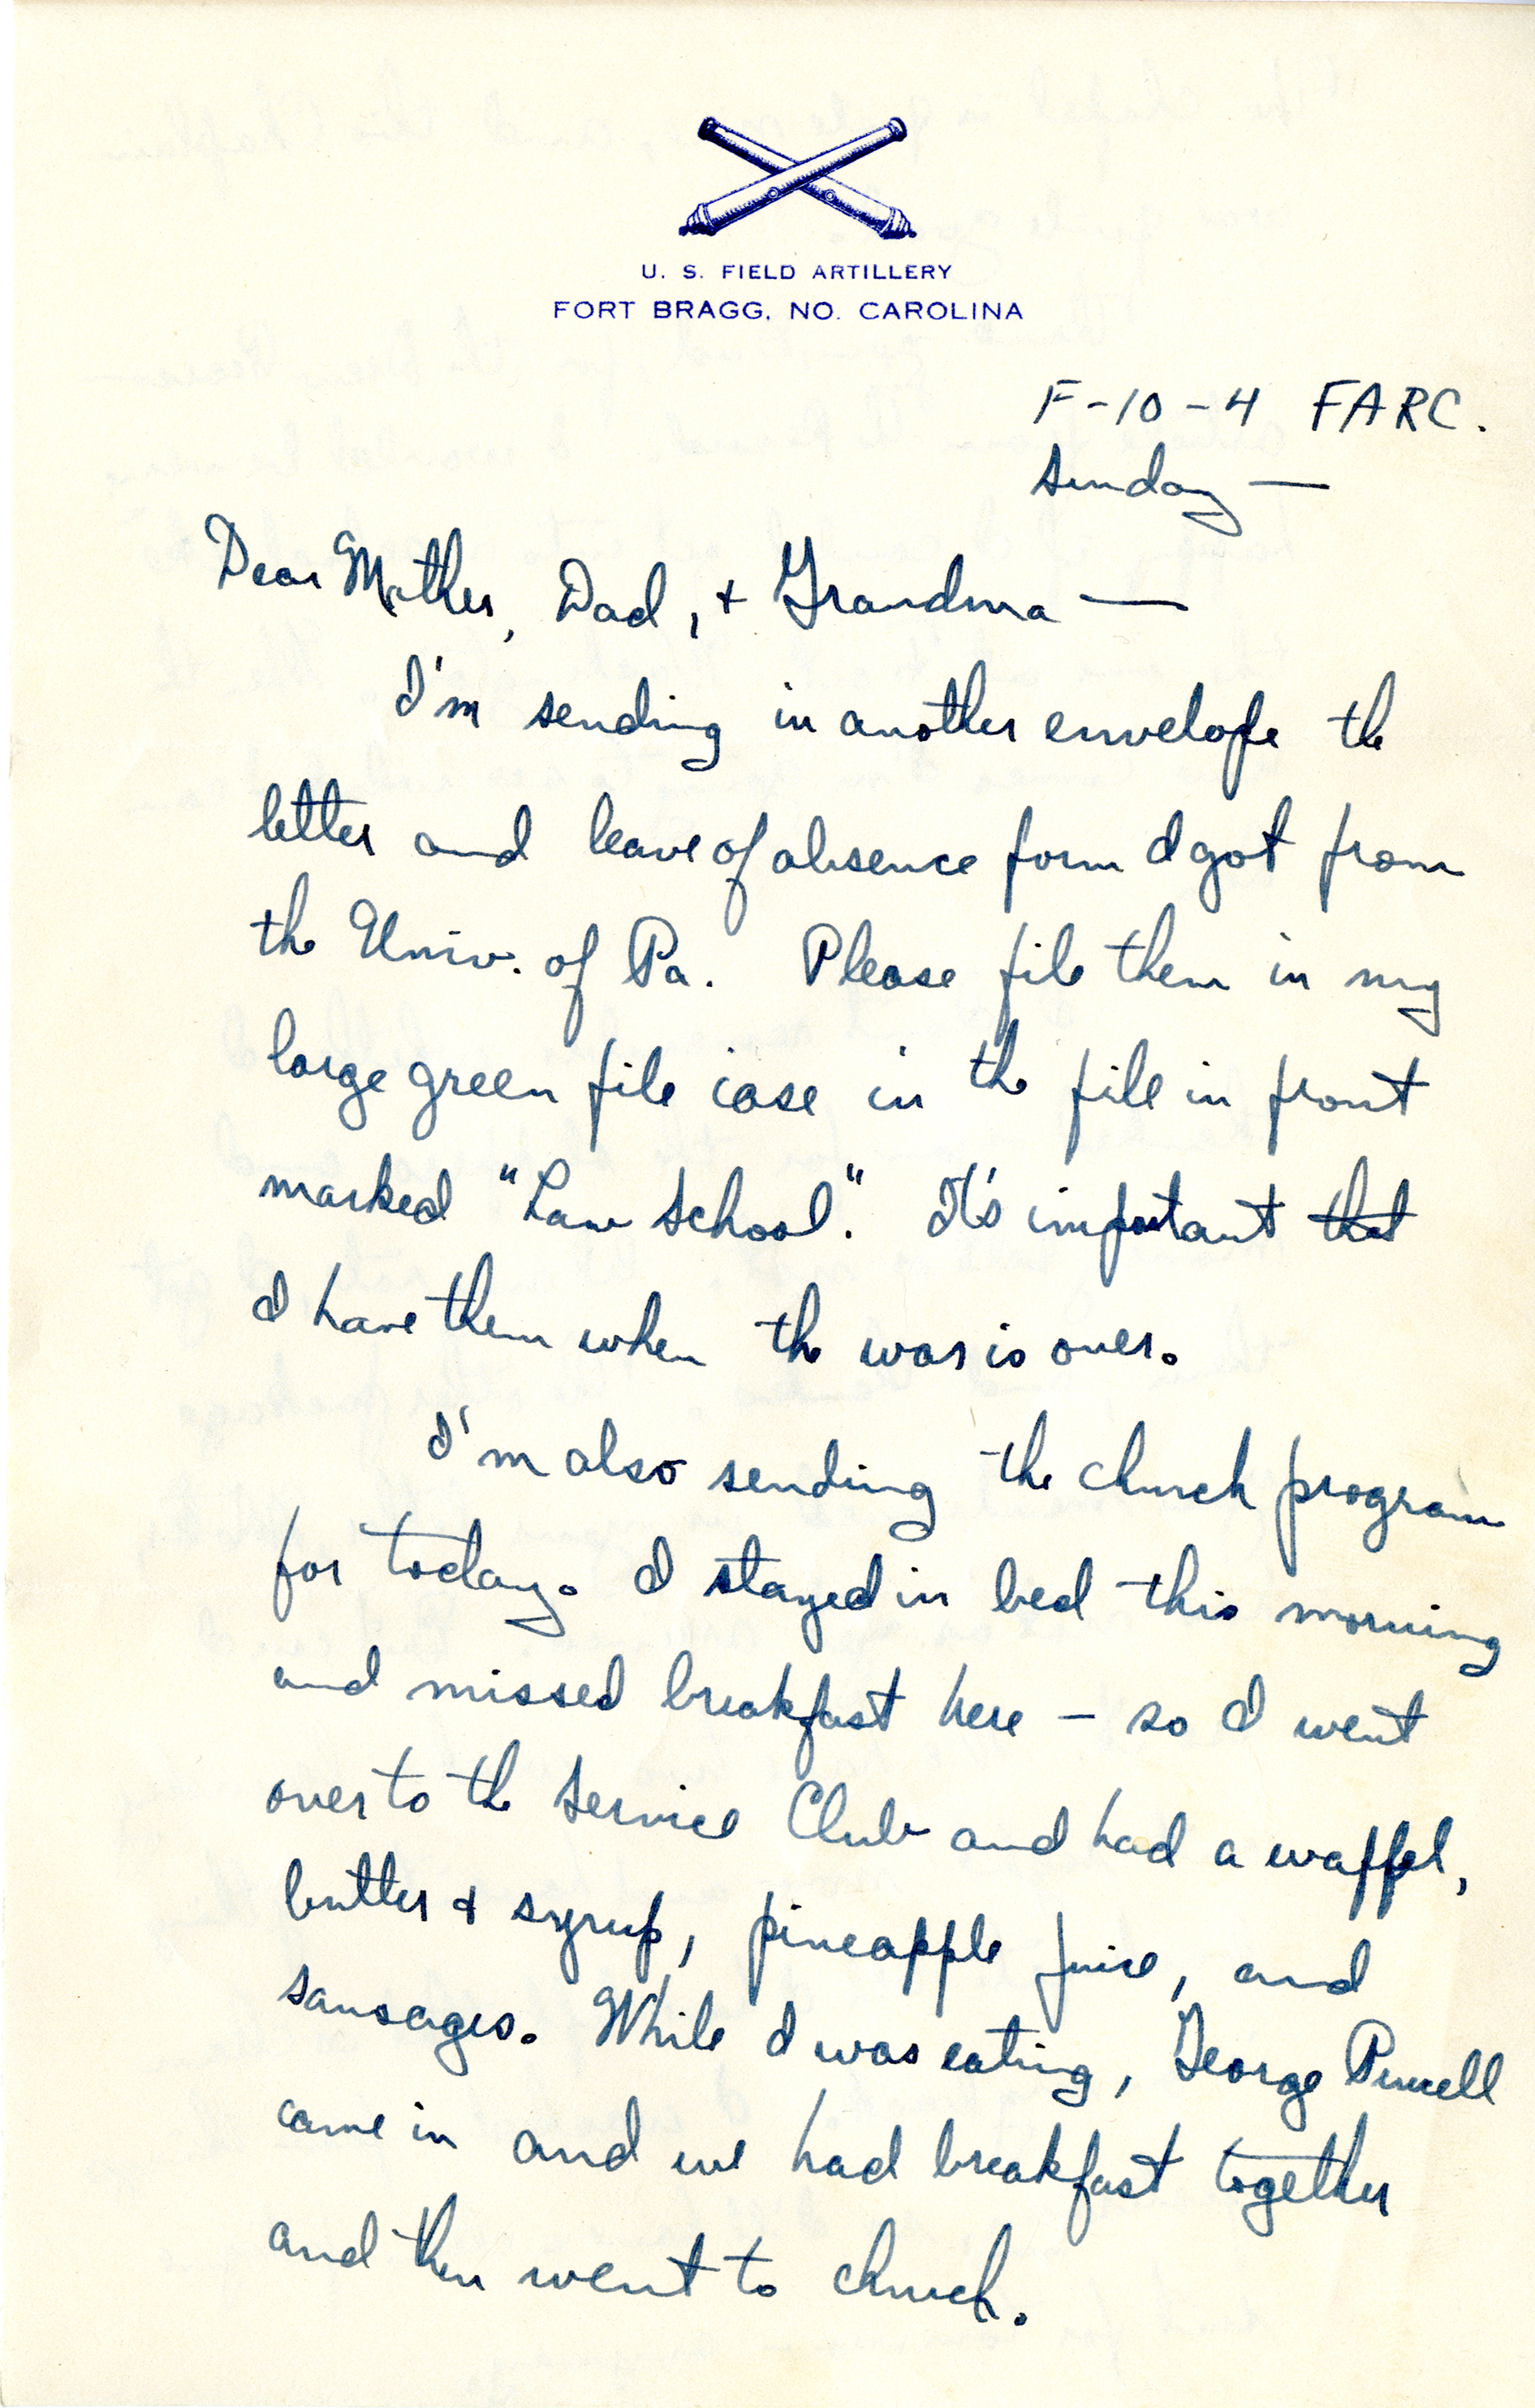 U. S. FIELD ARTILLERY
FORT BRAGG, NO. CAROLINA
F-10-4 FARC.
Sunday —
Dear Mother, Dad, + Grandma —
I'm sending in another envelope the
letter and leave of absence form I got from
the Univ. of Pa. Please file them in my
large green file case in the file in front
marked "Law School." It's important that
I have them when the war is over.
I'm also sending the church program
for today. I stayed in bed this morning
and missed breakfast here — so I went
over to the Service Club and had a waffel,
butter + syrup, pineapple juice, and
sausages. While I was eating, George Purcell
came in and we had breakfast together
and then went to church.